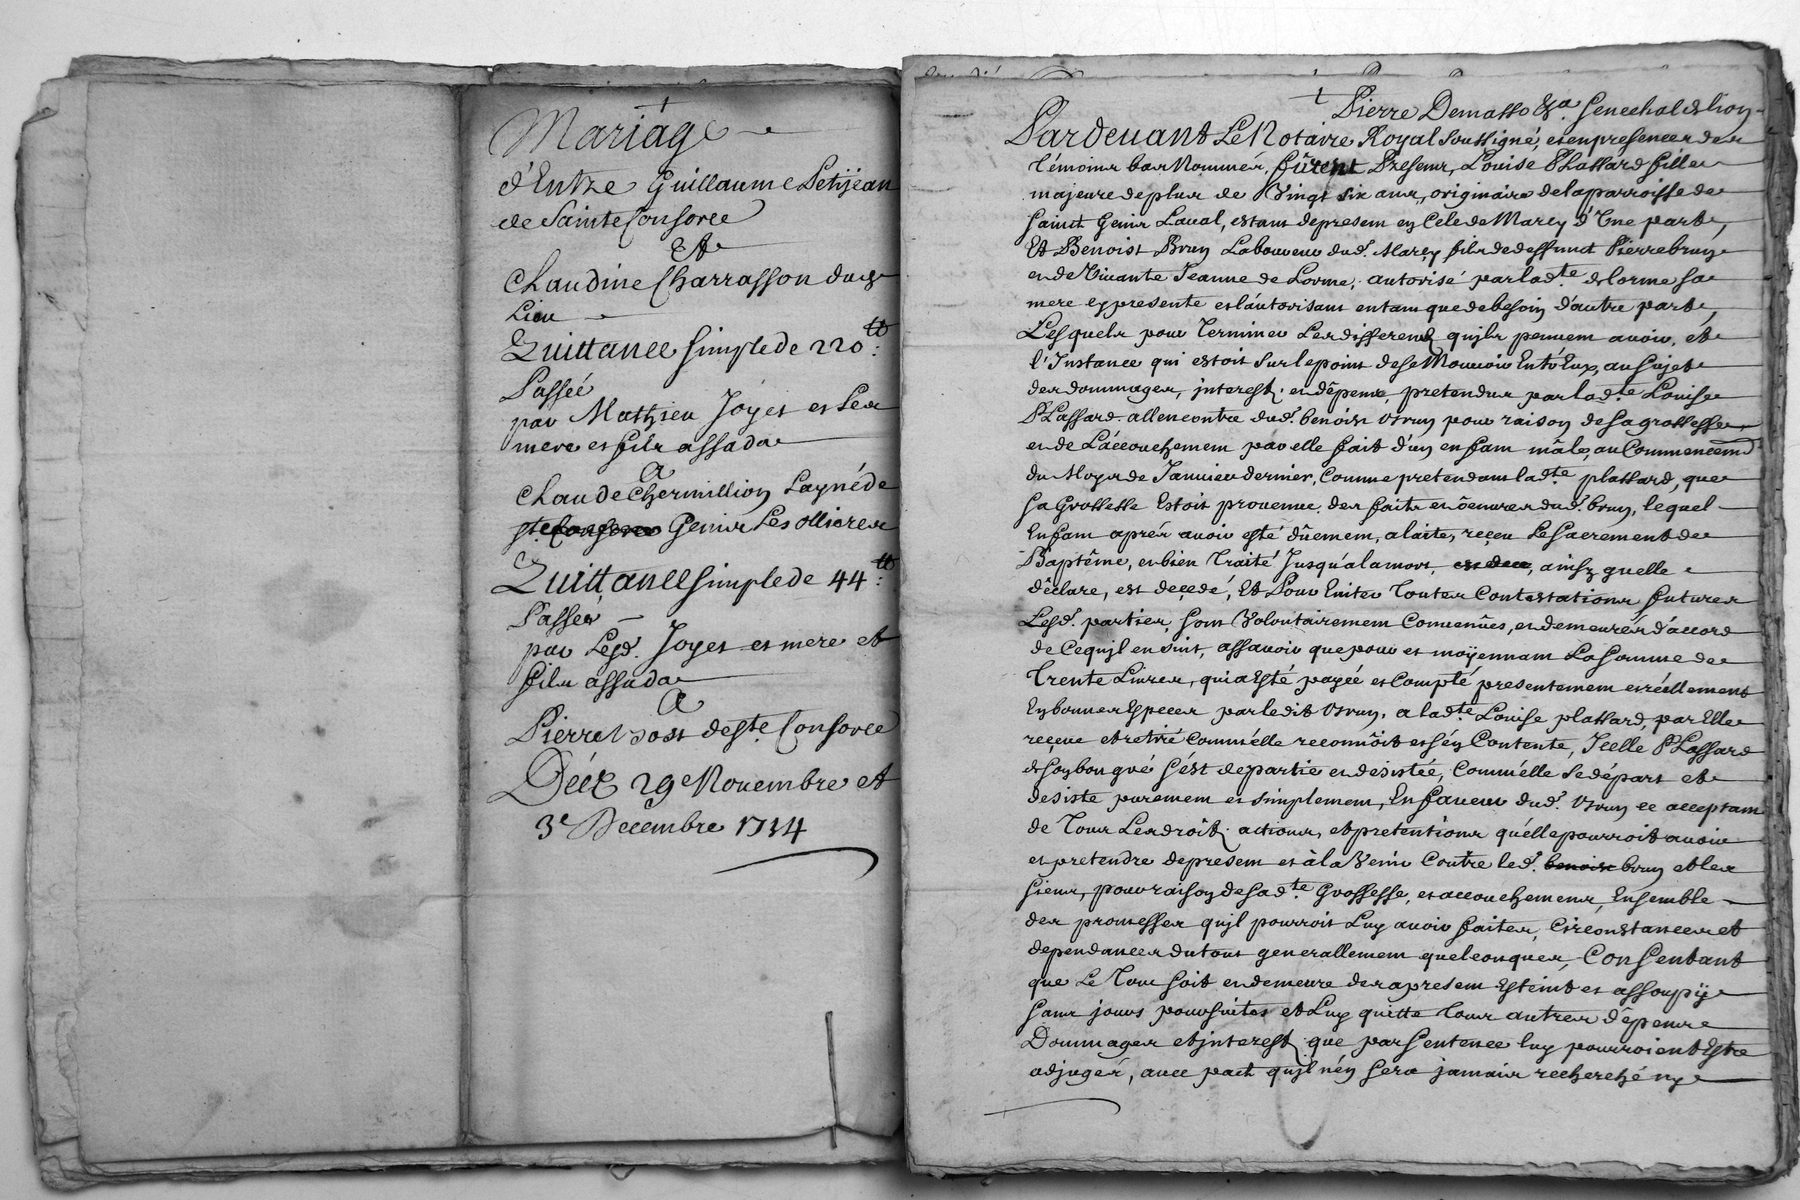 Mariage
d'Entre Guillaume Petijean
de Sainte Consorce
Et
Claudine Charrasson dud.
Lieu
Quittance simple de 220 tt:
Passée
par Mathieu Joyet et Ses
mere et fils assada
A
Claude Chermillion Layné de
st Consorce Genis Les Ollieres
Quittance simple de 44 tt:
Passée
par Lesd. Joyet et mere et
fils assada
A
Pierre de ste. Consorce
Deux 29e Novembre et
3e Decembre 1714
Pierre Demasso &a. Senechal de lion
Pardevant Le Notaire Royal soussigné, et en presence des
Témoins bas Nommés, fûrent Presens, Louise PLassard fille
majeure de plus de Vingt six ans, originaire de la parroisse de
Saint Genis Laval, estant de present en Cele de Marcy d'Une part,
Et Benoist Brun Laboureur dud. Marcy fils de deffunct Pierre brun
et de Vivante Jeanne de Lorme, autorisé par lad.te delorme sa
mere cy presente et l'autorisant en tant que de besoin d'autre part,
Lesquels pour Terminer Les differens quils peuvent avoir, et
l'Instance qui estoit sur le point de se Mouvoir Entr'Eux, au sujet
des dommages, interest, et dêpens, pretendus par lad.te Louise
PLassard allencontre dud. benoist brun pour raison de sa grossesse,
et de Láccouchement par elle fait d'un enfant mâle, au Commencemt
du Moys de Janvier dernier, Comme pretendant lad.te plassard, que
sa Grossesse Estoit provenue des faits et oeuvres dud. brun, lequel
Enfant aprés avoir esté dûement, alaité, reçeu Le sacrement de
Baptême, et bien Traité Jusqu'à la mort, est dece, ainsy quelle
dêclare, est deçedé, Et Pour Eviter Toutes Contestations futures
Lesd. parties, sont Volontairement Convenües, et demeurés d'accord
de Ce quil en suit, assavoir que pour et moÿennant La somme de
Trente Livres, qui a Esté payéé et Compté presentement et réellement
En bonnes Especes par ledit brun, a lad.te Louise plassard, par Elle
reçeue et retiré Comm'elle reconnôit et s'én Contente, Icelle PLassard
de son bon gré s'est departie et desistée, Comm'élle se départ et
desiste purement et simplement, En faveur dud. brun ce acceptant
de Tous Les droits, actions, et pretentions qu'élle pourroit avoir
et pretendre de present et à la Venir Contre led. benoist brun et les
siens, pour raison de sad.te Grossesse, et accouchement, Ensemble
des promesses quil pourroit Luy avoir faites, Circonstances et
dependances du tout generallement quelconques, Consentant
que Le Tout soit et demeure des a present Esteint et assoupÿ
sans jours poursuites et Luy quitte Tous autres dêpens
Dommages et interest que par Sentence luy pourroient Estre
adjugés, avec pact quil nén sera jamais recherché ny